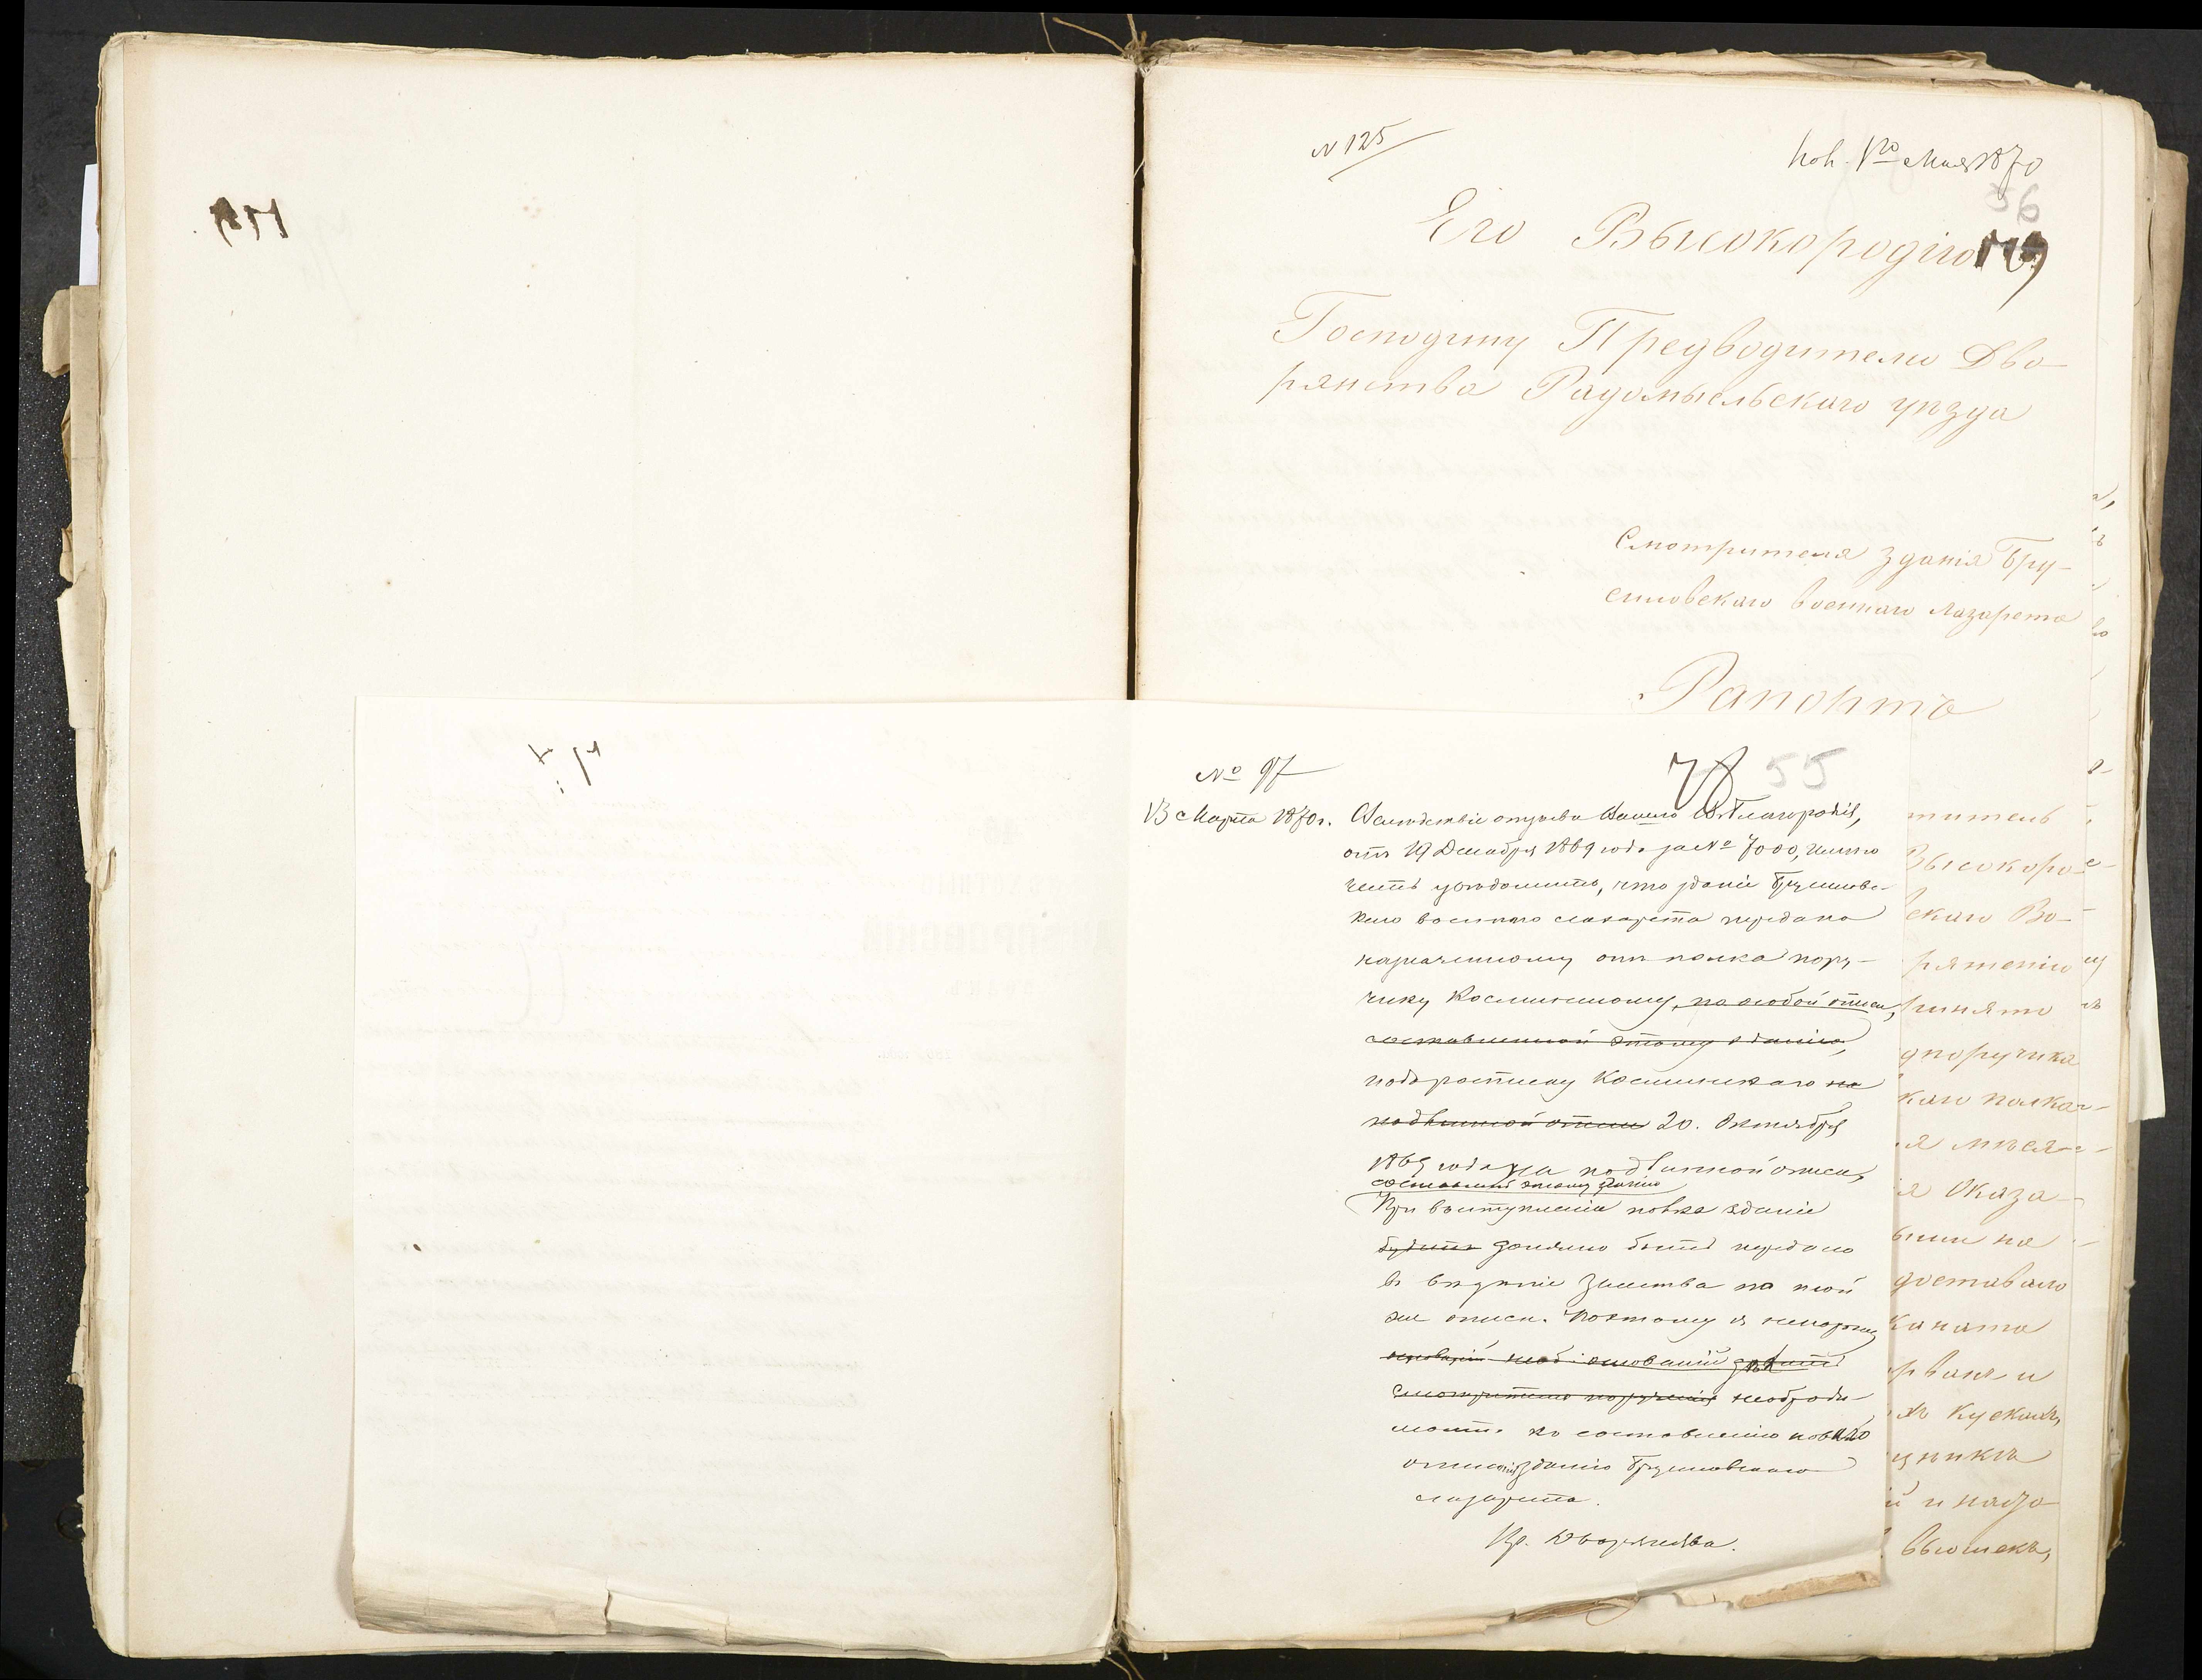 N 125
Пол. 1го Мая 1870
56
Его Высокородію
179
Господину Предводителю Дво-
рянства Радомысльскаго уѣзда
Смотрителя зданія Бру-
силовскаго военнаго лазарета
Рапортъ
№ 97
78 55
13 Марта 1870 г. Вслѣдствіе отзыва Вашего Благородія,
отъ 19 Декабря 1869 года за № 7000, имѣю
честь увѣдомить, что зданіе Брусиловс-
каго военнаго лазарета передано
назначенному отъ полка пору-
чику по особой описи,
составленной этому зданію,
подъ росписку на
подлинной описи 20. Октября
1869 года на подлинной описи,
составленной этому зданію
При выступленіи полка зданіе
будетъ должно быть передано
въ вѣдѣніе земства по той
же описи. Поэтому я
необходи-
мости къ составленію новаго
зданію Брусиловскаго
лазарета.
Пр. Дворянства.
титель
Высокоро-
скаго Во-
ряженію
принято
дпоручика
каго полка
я мѣся-
я Оказа-
ыми на
доставало
каната
рваны и
хъ кускахъ,
й и надо
вьюшекъ,